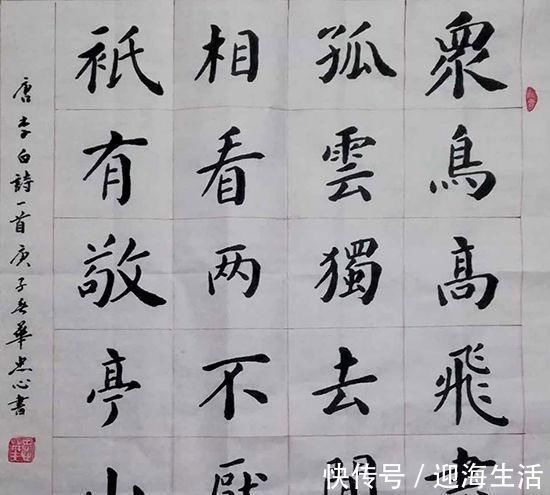 眾鳥高飛盡
孤雲獨去
相看两不厭
祇有敬亭山
唐李白詩一首庚子 華忠心書
快传号/迎海生活